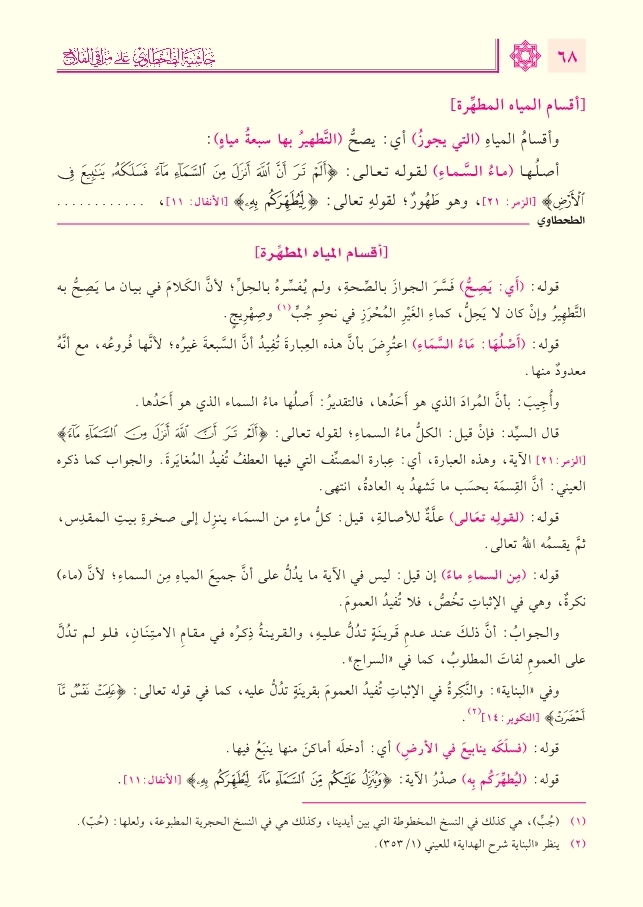 ٦٨
حاشية الطحطاوي على مراقي الفلاح
[أقسام المياه المطهِّرة]
وأقسامُ المياهِ (التي يجوزُ) أي: يصحُّ (التَّطهيرُ بها سبعةُ مياهٍ):
أصلُها (ماءُ السَّماءِ) لقوله تعالى: ﴿أَلَمْ تَرَ أَنَّ ٱللَّهَ أَنزَلَ مِنَ ٱلسَّمَآءِ مَآءً فَسَلَكَهُۥ يَنَٰبِيعَ فِى
ٱلْأَرْضِ﴾ [الزمر: ٢١]، وهو طَهُورٌ؛ لقولهِ تعالى: ﴿لِّيُطَهِّرَكُم بِهِۦ﴾ [الأنفال: ١١]، ............
الطحطاوي
[أقسام المياه المطهِّرة]
قوله: (أَي: يَصِحُّ) فَسَّرَ الجوازَ بالصِّحةِ، ولم يُفسِّرهُ بالحِلِّ؛ لأنَّ الكَلامَ في بيان ما يَصِحُّ به
التَّطهِيرُ وإنْ كان لا يَحِلُّ، كماءِ الغَيْرِ المُحْرَزِ في نحوِ جُبٍّ(١) وصِهْرِيجٍ.
قوله: (أَصْلُهَا: مَاءُ السَّمَاءِ) اعتُرِضَ بأنَّ هذه العِبارةَ تُفِيدُ أنَّ السَّبعةَ غيرُه؛ لأنَّها فُروعُه، مع أنَّهُ
معدودٌ منها.
وأُجِيبَ: بأنَّ المُرادَ الذي هو أَحَدُها، فالتقديرُ: أَصلُها ماءُ السماء الذي هو أَحَدُها.
قال السيِّد: فإنْ قيل: الكلُّ ماءُ السماءِ؛ لقوله تعالى: ﴿أَلَمْ تَرَ أَنَّ ٱللَّهَ أَنزَلَ مِنَ ٱلسَّمَآءِ مَآءً﴾
[الزمر: ٢١] الآية، وهذه العبارة، أي: عِبارة المصنِّف التي فيها العطفُ تُفيدُ المُغايَرةَ. والجواب كما ذكره
العيني: أنَّ القِسمَة بحسَب ما تَشهدُ به العادةُ، انتهى.
قوله: (لقولِه تعَالى) علَّةٌ للأصالةِ، قيل: كلُّ ماءٍ من السمَاء ينزِل إلى صخرةِ بيتِ المقدِس،
ثمَّ يقسمُه اللهُ تعالى.
قوله: (مِن السماءِ ماءً) إن قيل: ليس في الآية ما يدُلُّ على أنَّ جميعَ المياهِ مِن السماءِ؛ لأنَّ (ماء)
نكرةٌ، وهي في الإثباتِ تخُصُّ، فلا تُفيدُ العمومَ.
والجوابُ: أنَّ ذلكَ عند عدمِ قَرينَةٍ تدُلُّ عليهِ، والقرينةُ ذِكرُه في مقامِ الامتِنَانِ، فلو لم تدُلَّ
على العمومِ لفاتَ المطلوبُ، كما في «السراج».
وفي «البناية»: والنَّكِرةُ في الإثباتِ تُفيدُ العمومَ بقرينَةٍ تدُلُّ عليه، كما في قوله تعالى: ﴿عَلِمَتْ نَفْسٌ مَّآ
أَحْضَرَتْ﴾ [التكوير: ١٤](٢).
قوله: (فسلَكَه ينابيعَ في الأرضِ) أي: أدخلَه أماكنَ منها ينبَعُ فيها.
قوله: (ليُطهِّرَكُم بِه) صدْرُ الآية: ﴿وَيُنَزِّلُ عَلَيْكُم مِّنَ ٱلسَّمَآءِ مَآءً لِّيُطَهِّرَكُم بِهِۦ﴾ [الأنفال: ١١].
(١) (جُبٍّ)، هي كذلك في النسخ المخطوطة التي بين أيدينا، وكذلك هي في النسخ الحجرية المطبوعة، ولعلها: (حُبّ).
(٢) ينظر «البناية شرح الهداية» للعيني (١/ ٣٥٣).